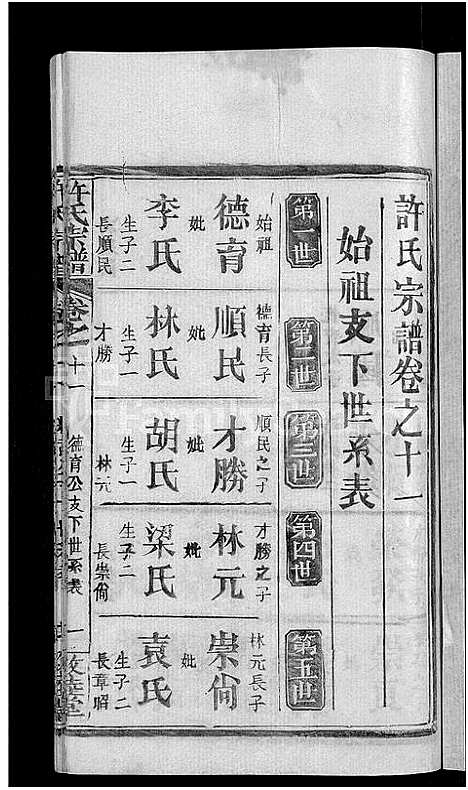 許氏宗譜卷之十一
始祖支下世系表
第一世
第二世
第三世
第四世
第五世
始祖
德育
妣
李氏
生子二
長順民
德育長子
順民
妣
林氏
生子一
才勝
順民之子
才勝
妣
胡氏
生子一
林元
才勝之子
林元
妣
梁氏
生子二
長崇尙
林元長子
崇尙
妣
袁氏
生子二
長章昭
許氏宗譜
卷之
十一
德育公支下世系表
一